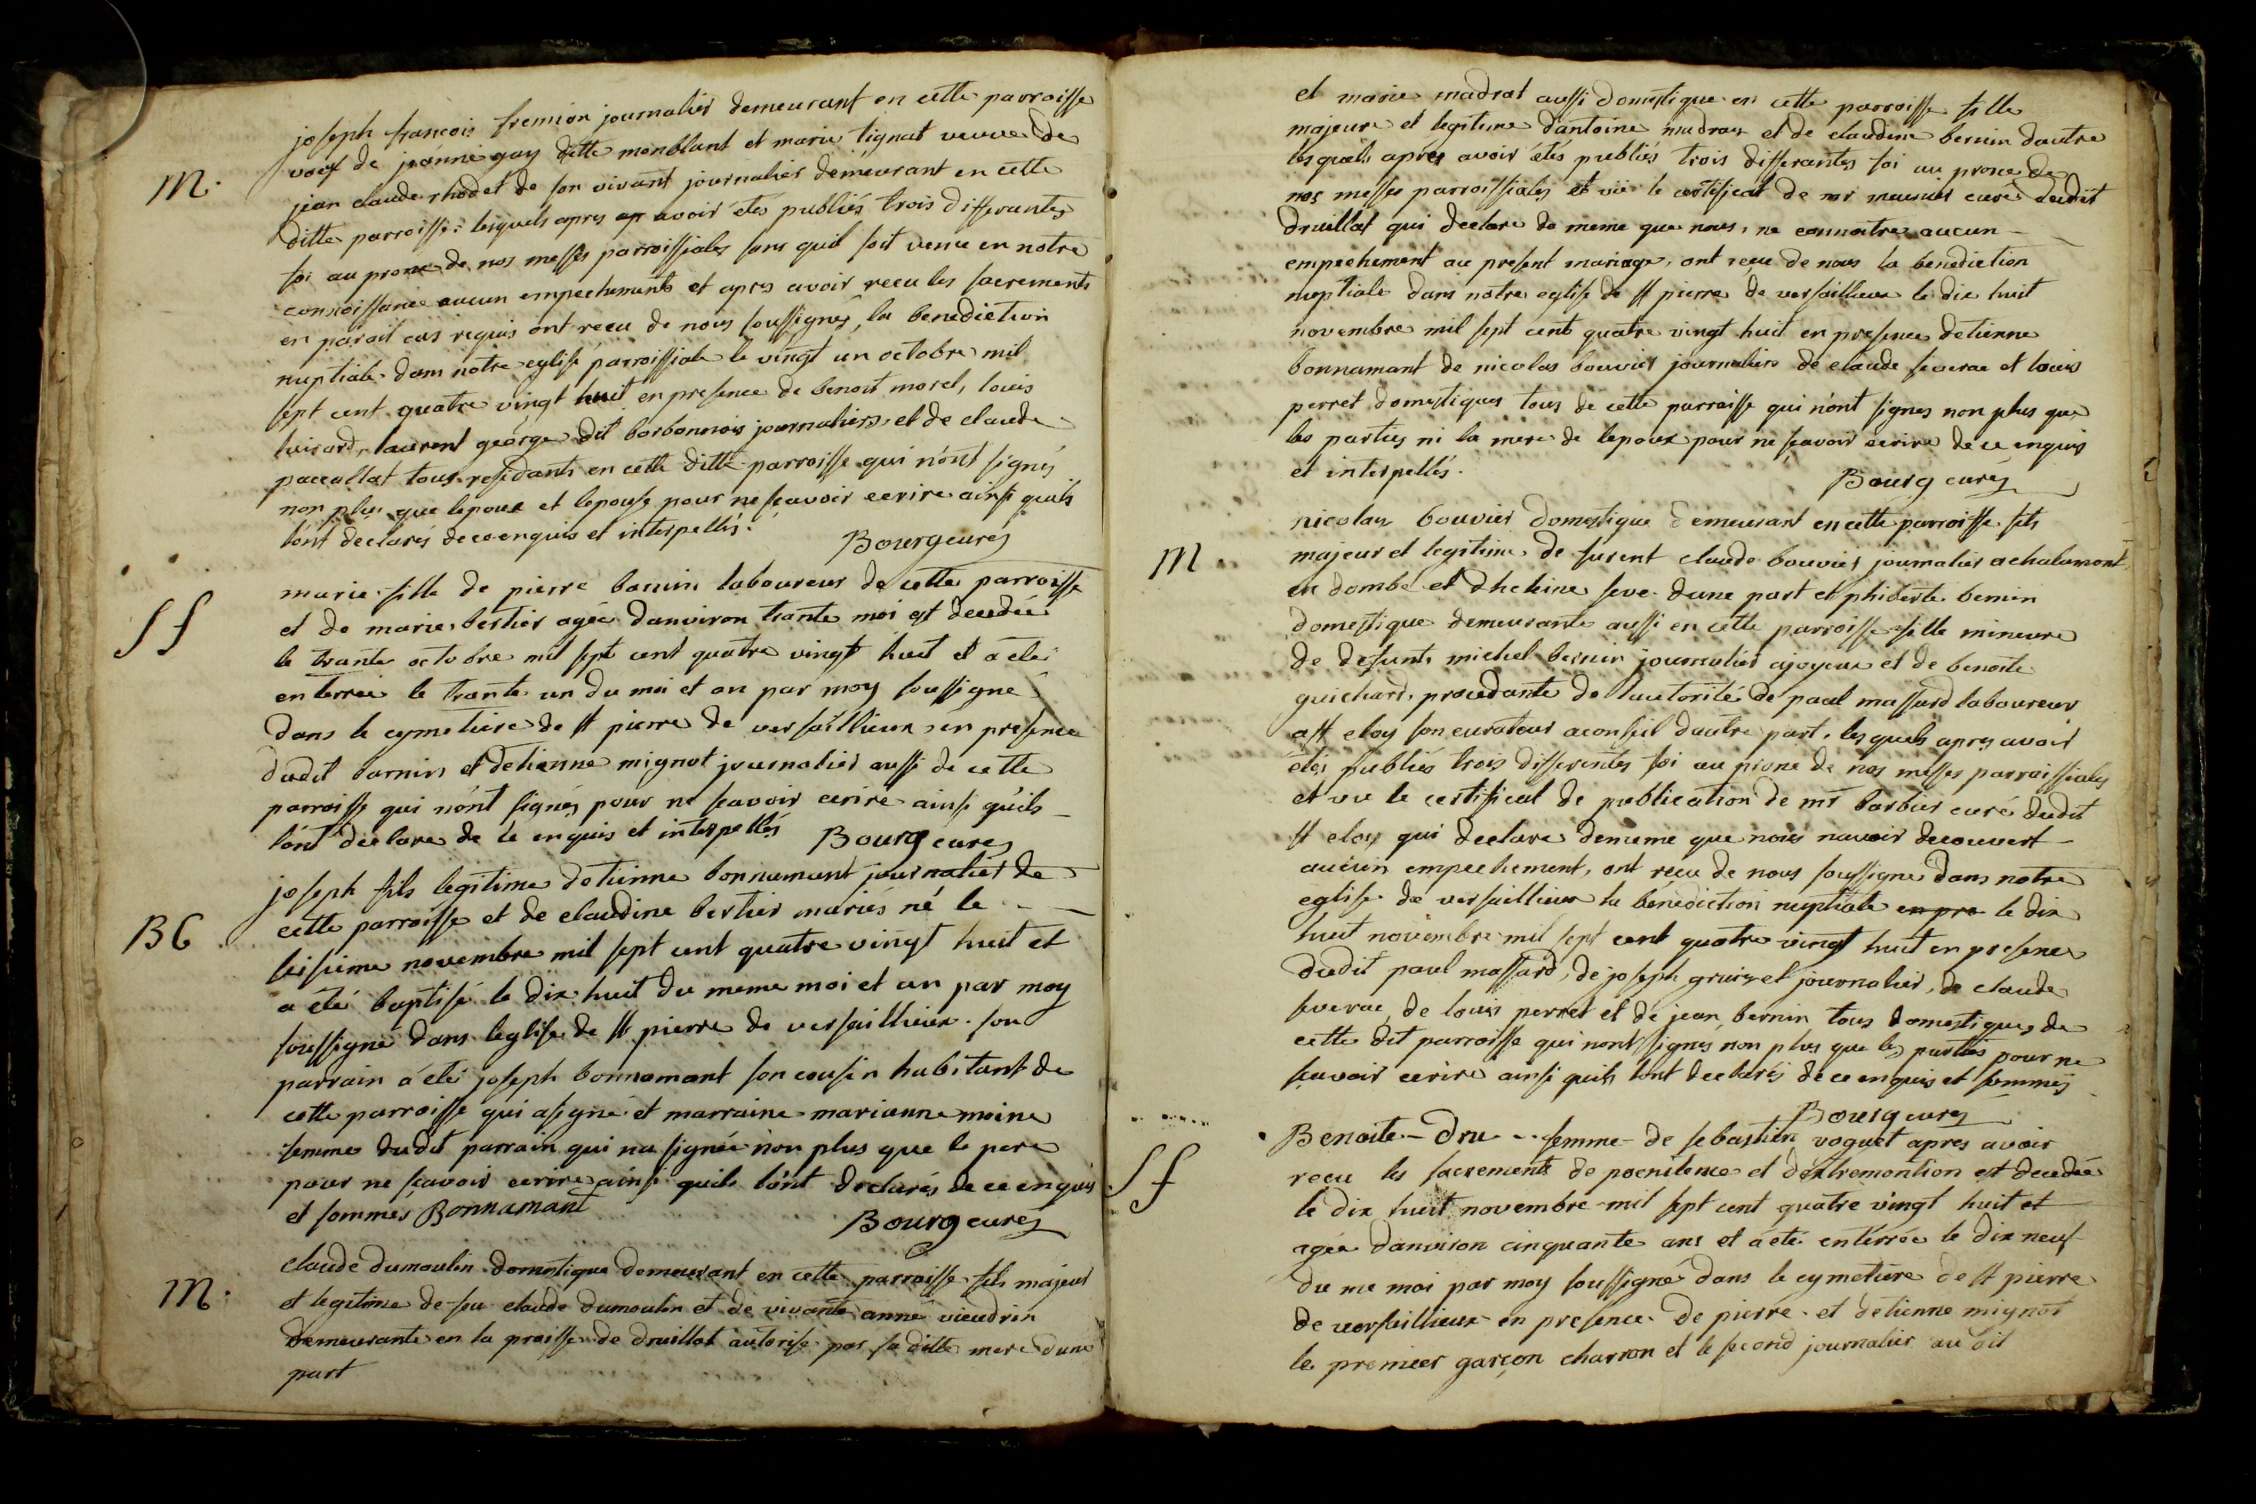 M.
joseph francois fremion journalier demeurant en cette parroisse
voef de jeanne gay ditte monblant et marie tignat veuve de
jean claude rhodet de son vivant journalier demeurant en cette
ditte parroisse, lesquels apres avoir etés publiés trois differantes
foi au prone de nos messes parroissiales sans quil soit venu en notre
connoissance aucun empechements et apres avoir recu les sacrements
en pareil cas requis ont recu de nous soussigné, la benediction
nuptiale dans notre eglise parroissiale le vingt un octobre mil
sept cent quatre vingt huit en presence de benoit morel, louis
huvard, laurent george dit borbonnois journaliers, et de claude
paccallat tous residants en cette ditte parroisse qui n'ont signés
non plus que lepoux et lepouse pour ne sçavoir ecrire ainsi quils
lont déclarés de ce enquis et interpellés. Bourg curé
Sf
marie fille de pierre barnin laboureur de cette parroisse
et de marie bertier agée danviron trante moi est decedée
le trante octobre mil sept cent quatre vingt huit et a eté
enterrée le trante un du moi et an par moy soussigné
dans le cymetiere de st pierre de versaillieux en presence
dudit barnin et detienne mignot journalier aussi de cette
parroisse qui nont signés pour ne sçavoir ecrire ainsi quils
lont declare de ce enquis et interpellés Bourg curé
BC
joseph fils legitime detienne bonnamant journalier de
cette parroisse et de claudine bertier mariés né le
seisieme novembre mil sept cent quatre vingt huit et
a été baptisé le dix huit du meme moi et an par moy
soussigné dans leglise de st pierre de versaillieux. son
parrain a été joseph bonnamant son cousin habitant de
cette parroisse qui a signé et marraine marianne moine
femme dudit parrain qui na signée non plus que le pere
pour ne sçavoir ecrire ainsi quils lont declarés de ce enquis
et sommés Bonnamant Bourg curé
M.
claude dumoulin domestique demeurant en cette parroisse fils majeur
et legitime de feu claude dumoulin et de vivante anne vieudrin
demeurante en la proisse de druillat autorisé par sa ditte mere dune
part
et marie madrat aussi domestique en cette parroisse fille
majeure et legitime dantoine madrat et de claudine bernin dautre
lesquels apres avoir étés publiés trois differantes foi au prone de
nos messes parroissiales et vû le certificat de mr meunier curé dudit
druillat qui declare de meme que nous, ne connoitre aucun
empechement au present mariage, ont recu de nous la benediction
nuptiale dans notre eglise de st pierre de versaillieux le dix huit
novembre mil sept cent quatre vingt huit en presence detienne
bonnamant de nicolas bouvier journaliers de claude severac et louis
perret domestiques tous de cette parroisse qui n'ont signes non plus que
les parties ni la mere de lepoux pour ne sçavoir ecrire de ce enquis
et interpellés.
Bourg curé
M
nicolas bouvier domestique demeurant en cette parroisse fils
majeur et legitime de furent claude bouvier journalier a chalamont
en dombe et dheleine seve dune part et phiberte bernin
domestique demeurante aussi en cette parroisse fille mineure
de defunts michel bernin journalier a joyeux et de benoite
guichard, procedante de lautorité de paul massard laboureur
a st eloy son curateur aconseil dautre part, lesquels apres avoir
étés publiés trois differentes foi au prone de nos messes parroissiales
et vu le certificat de publication de mr barbier curé dudit
st eloy qui declare dememe que nous navoir decouvert
aucun empechement, ont recu de nous soussigné dans notre
eglise de versaillieux la bénédiction nuptiale en pre le dix
huit novembre mil sept cent quatre vingt huit en presence
dudit paul massard, de joseph gruizet journalier, de claude
severac, de louis perret et de jean bernin tous domestiques de
cette dit parroisse qui nont signés non plus que les parties pour ne
sçavoir ecrire ainsi quils lont declarés de ce enquis et sommés
Bourg curé
Sf
Benoite Dru femme de sebastien voguet apres avoir
recu les sacrements de poenitence et dextremontion est decedée
le dix huit novembre mil sept cent quatre vingt huit et
agée danviron cinquante ans et a eté enterrée le dix neuf
du me moi par moy soussigné dans le cymetiere de st pierre
de versaillieux en presence de pierre et detienne mignot
le premier garçon charron et le second journalier audit